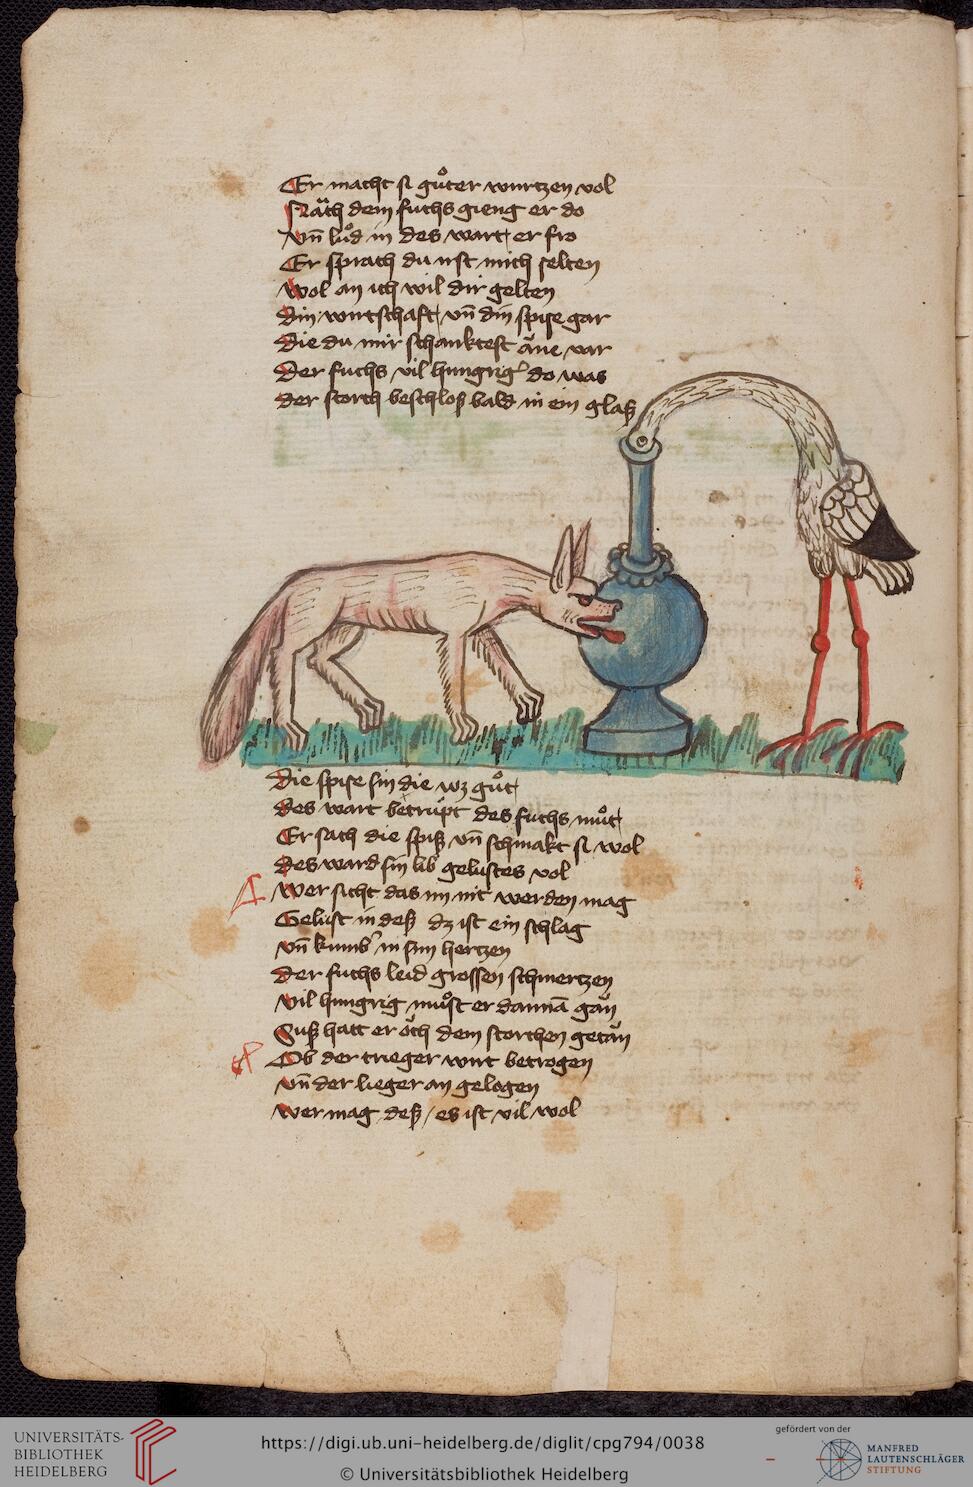 Er macht si gůter wurtzen vol
Nåch dem fuchs gieng er do
vn̄ lůd in des wart er fro
Er sprach du ust mich selten
wol an ich wil dir gelten
din wirtschaft vn̄ din spise gar
die du mir schanktest åne var
Der fuchs vil hungrig do was
der storch beschlosß bald in ein glasß
die spise sin die wz gůt
des wart betrüpt des fuchs můt
Er sach die spiß vn̄ schmakt si wol
des ward sin lib gelustes vol
wer sicht das im nit werden mag
Gelust in deß dz ist ein schlag
vn̄ kumb' in sim hertzen
der fuchs leid grossen schmertzen
vil hungrig můst er dannā gån
Suß hatt er öch dem storchen getån
Ob der trieger wirt betrogen
vn̄ der lieger an gelogen
wer mag deß / es ist vil wol
UNIVERSITÄTS-
BIBLIOTHEK
HEIDELBERG
https://digi.ub.uni-heidelberg.de/diglit/cpg794/0038
© Universitätsbibliothek Heidelberg
gefördert von der
MANFRED
LAUTENSCHLÄGER
STIFTUNG